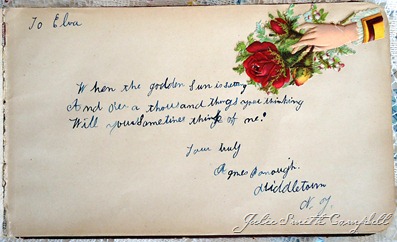 To Elva
When the golden Sun is setting
And over a thousand things your thinking
Will you Sometimes think of me!
Your truly
Agnes Donough.
Middletown
N. Y.
Julie Smith Campbell